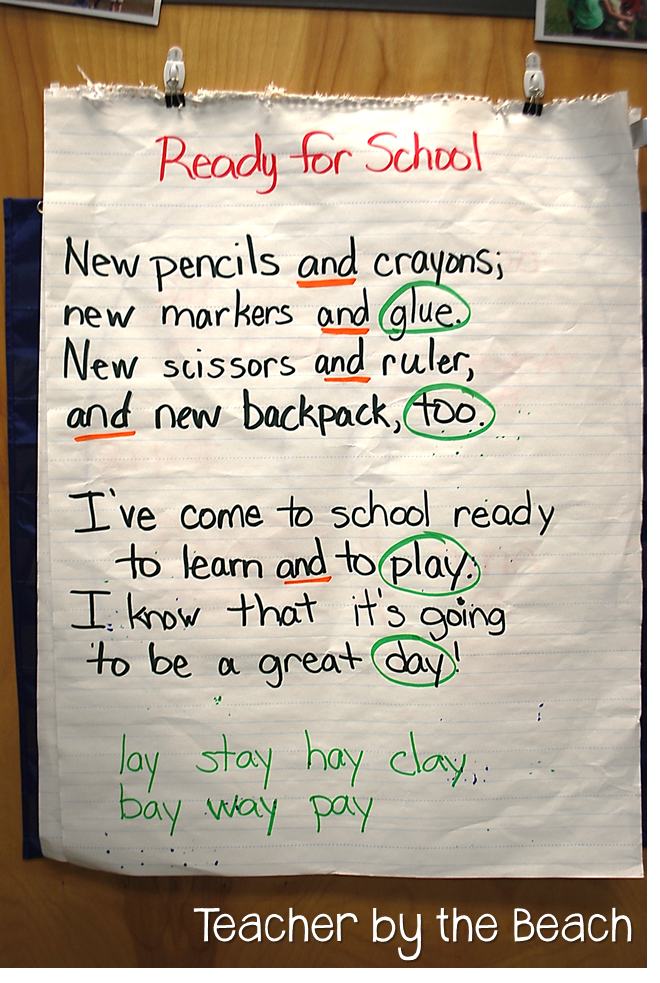 Ready for School
New pencils and crayons;
new markers and glue.
New scissors and ruler,
and new backpack, too.
I've come to school ready
to learn and to play.
I know that it's going
to be a great day!
lay stay hay clay
bay way pay
Teacher by the Beach